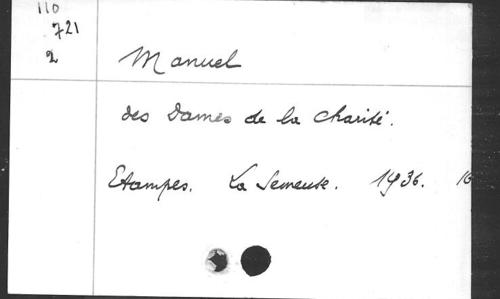 110
721
2
Manuel
des Dames de la Charité.
Etampes. La Semeuse. 1936. 16